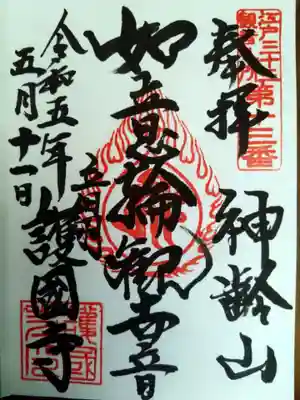 江戸三十三
観音札所
第十三番
奉拝
神齢山
如意輪觀世音
音羽
護國寺
令和五年
五月十一日